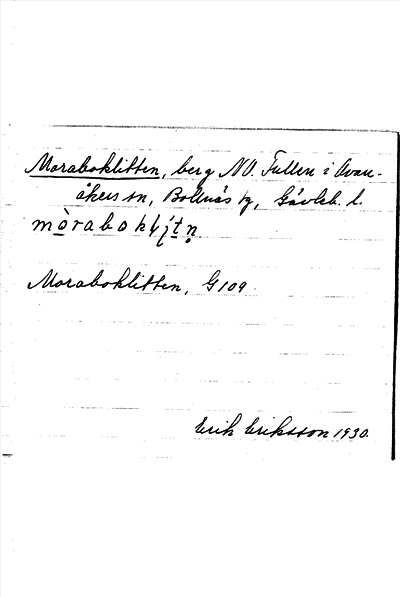 Moraboklitten, berg NO. Fullen i Ovan-
åkers sn, Bollnäs tg, Gävleb. l.
mòraboklitn̥
Moraboklitten, G109
Erik Eriksson 1930.